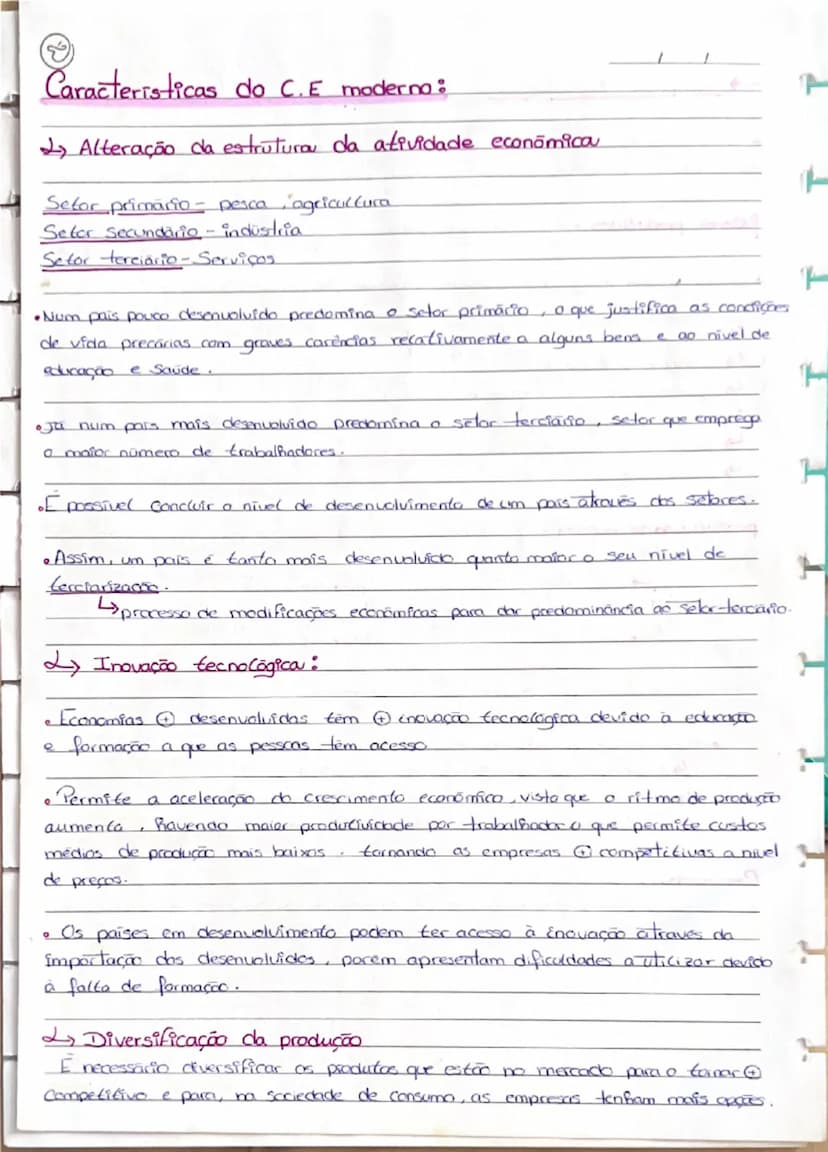 2
Características do C.E moderno:
↳ Alteração da estrutura da atividade económica
Setor primário - pesca, agricultura
Setor secundário - indústria
Setor terciário - Serviços
• Num país pouco desenvolvido predomina o setor primário, o que justifica as condições
de vida precárias com graves carências relativamente a alguns bens e ao nível de
educação e saúde.
• Já num país mais desenvolvido predomina o setor terciário, setor que emprega
o maior número de trabalhadores.
• É possível concluir o nível de desenvolvimento de um país através dos setores.
• Assim, um país é tanto mais desenvolvido quanto maior o seu nível de
terciarização.
↳ processo de modificações económicas para dar predominância ao setor terciário.
↳ Inovação tecnológica:
• Economias ⊕ desenvolvidas têm ⊕ inovação tecnológica devido à educação
e formação a que as pessoas têm acesso
• Permite a aceleração do crescimento económico, visto que o ritmo de produção
aumenta, havendo maior produtividade por trabalhador o que permite custos
médios de produção mais baixos. tornando as empresas ⊕ competitivas a nível
de preços.
• Os países em desenvolvimento podem ter acesso à inovação através da
importação dos desenvolvidos, porém apresentam dificuldades a utilizar devido
à falta de formação.
↳ Diversificação da produção
É necessário diversificar os produtos que estão no mercado para o tornar ⊕
competitivo e para, na sociedade de consumo, as empresas tenham mais opções.